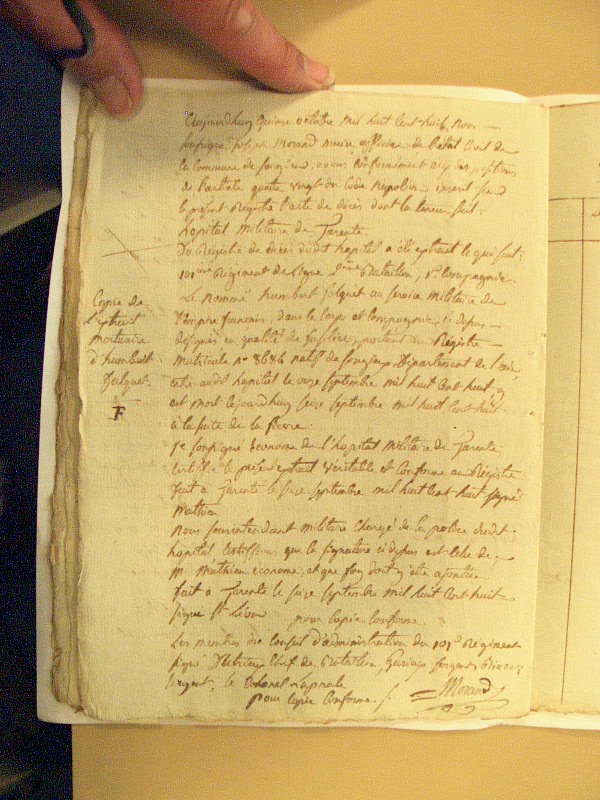 Copie de
L'extrait
mortuaire
d'humbert
falquet.
F
Aujourdhuy quinze octobre mil huit cent huit, nous
soussigné joseph Morand maire officier de l'état Civil de
la Commune de avons Conformément aux dispositions
de l'article quatre vingt du Code Napoléon inseré sur
le présent Registre l'acte de décès dont la teneur suit:
hopital Militaire de Tarente
Du Registre de décès dudit hopital a été extrait ce qui suit:
101me Régiment de Ligne Bataillon, Compagnie.
Le nommé humbert falquet au service militaire de
l'empire francais, dans le Corps et Compagnie ci dessus
désignés en qualité de fusilier, portant au Registre
Matricule n° 8686 natif de Département de
entré audit hopital le onze septembre mil huit cent huit
est mort cejourdhuy seize septembre mil huit cent huit
à la suite de la fievre.
Je soussigné Econome de l'hopital Militaire de Tarente
Certifie le présent extrait véritable et Conforme au Registre
fait à Tarente le seize septembre mil huit cent huit signé
Mathieu
Nous sousintendant militaire Chargé de la police dudit
hopital Certifions que la signature ci dessus est Celle de
M. Mathieu économe, et que foy doit y être ajoutée
fait à Tarente le seize septembre mil huit cent huit
signé St Léon pour Copie Conforme
Les membres du Conseil d'administration du 101e Régiment
signé Chef de Bataillon, sergent
sergent, le Colonel
pour Copie Conforme
Morand